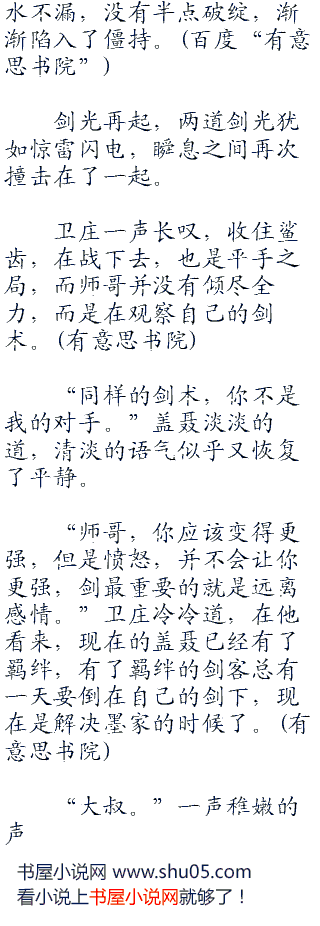 水不漏，没有半点破绽，渐
渐陷入了僵持。(百度“有意
思书院”)
剑光再起，两道剑光犹
如惊雷闪电，瞬息之间再次
撞击在了一起。
卫庄一声长叹，收住鲨
齿，在战下去，也是平手之
局，而师哥并没有倾尽全
力，而是在观察自己的剑
术。(有意思书院)
“同样的剑术，你不是
我的对手。”盖聂淡淡的
道，清淡的语气似乎又恢复
了平静。
“师哥，你应该变得更
强，但是愤怒，并不会让你
更强，剑最重要的就是远离
感情。”卫庄冷冷道，在他
看来，现在的盖聂已经有了
羁绊，有了羁绊的剑客总有
一天要倒在自己的剑下，现
在是解决墨家的时候了。(有
意思书院)
“大叔。”一声稚嫩的
声
书屋小说网 www.shu05.com
看小说上书屋小说网就够了！